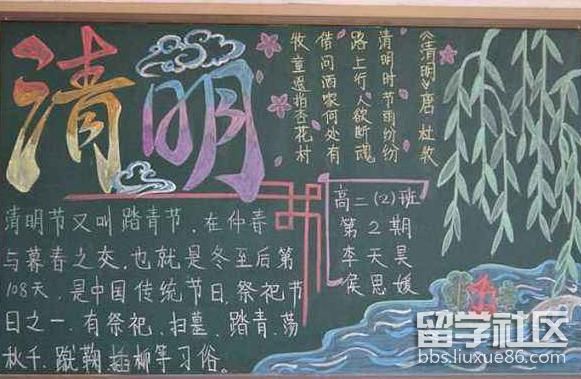 清明
《清明》唐 杜牧
清明时节雨纷纷
路上行人欲断魂
借问酒家何处有
牧童遥指杏花村
高二(2)班
第2期
李天昊
侯思媛
清明节又叫踏青节,在仲春
与暮春之交,也就是冬至后第
108天,是中国传统节日,祭祀节
日之一,有祭祀、扫墓、踏青、荡
秋千、蹴鞠、插柳等习俗。
留学社区
bbs.liuxue86.com